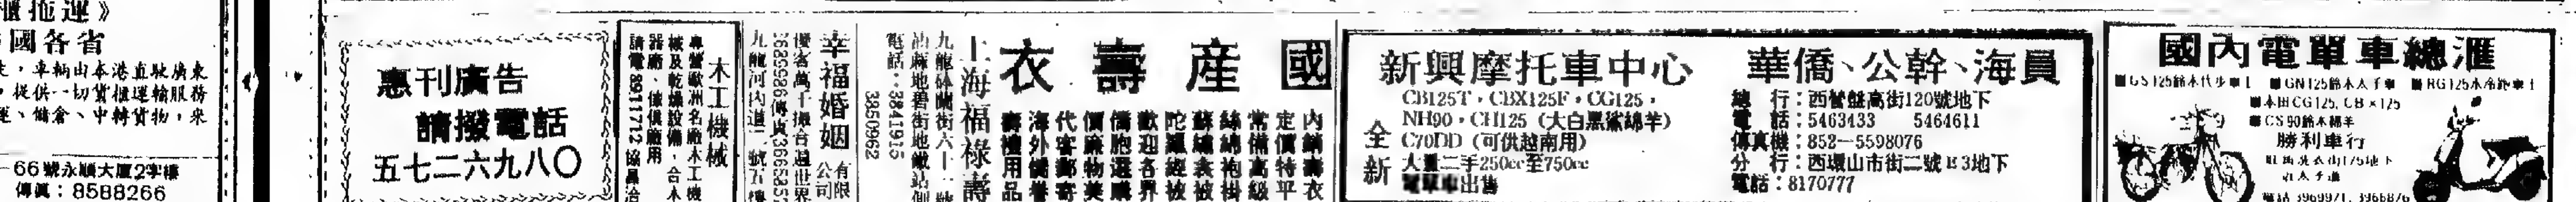 櫃拖運》
國各省
車輛由本港直駛廣東
提供一切貨櫃運輸服務
儲倉、中轉貨物，來
66號永順大廈2字樓
傳真：8588266
惠刊廣告
請撥電話
五七二六九八〇
木工機械
專營歐洲名廠木工機
械及乾燥設備，合木
器廠、傢俱廠用
請電8911712
幸福婚姻有限公司
九龍河內道
上海福祿壽
九龍砵蘭街六十一號
油麻地碧街地鐵站側
電話：3841915
3850962
國產壽衣
內銷壽衣
定價特平
常備高級
絲綿袍掛
蘇繡衾被
陀羅經被
歡迎各界
僑胞選購
價廉物美
代客郵寄
海外僑眷
壽禮用品
新興摩托車中心
全新
CB125T，CBX125F，CG125，
NH90，CH125（大白黑鯊綿羊）
C70DD（可供越南用）
大量二手250cc至750cc
電單車出售
華僑、公幹、海員
總行：西營盤高街120號地下
電話：5463433 5464611
傳真機：852—5598076
分行：西環山市街二號B3地下
電話：8170777
國內電單車總滙
■GS125鈴木代步車！ ■GN125鈴木太子車 ■RG125水冷跑車！
■本田CG125, CB×125
■CS90鈴木綿羊
勝利車行
旺角洗衣街175地下
電話 3969971, 3966876